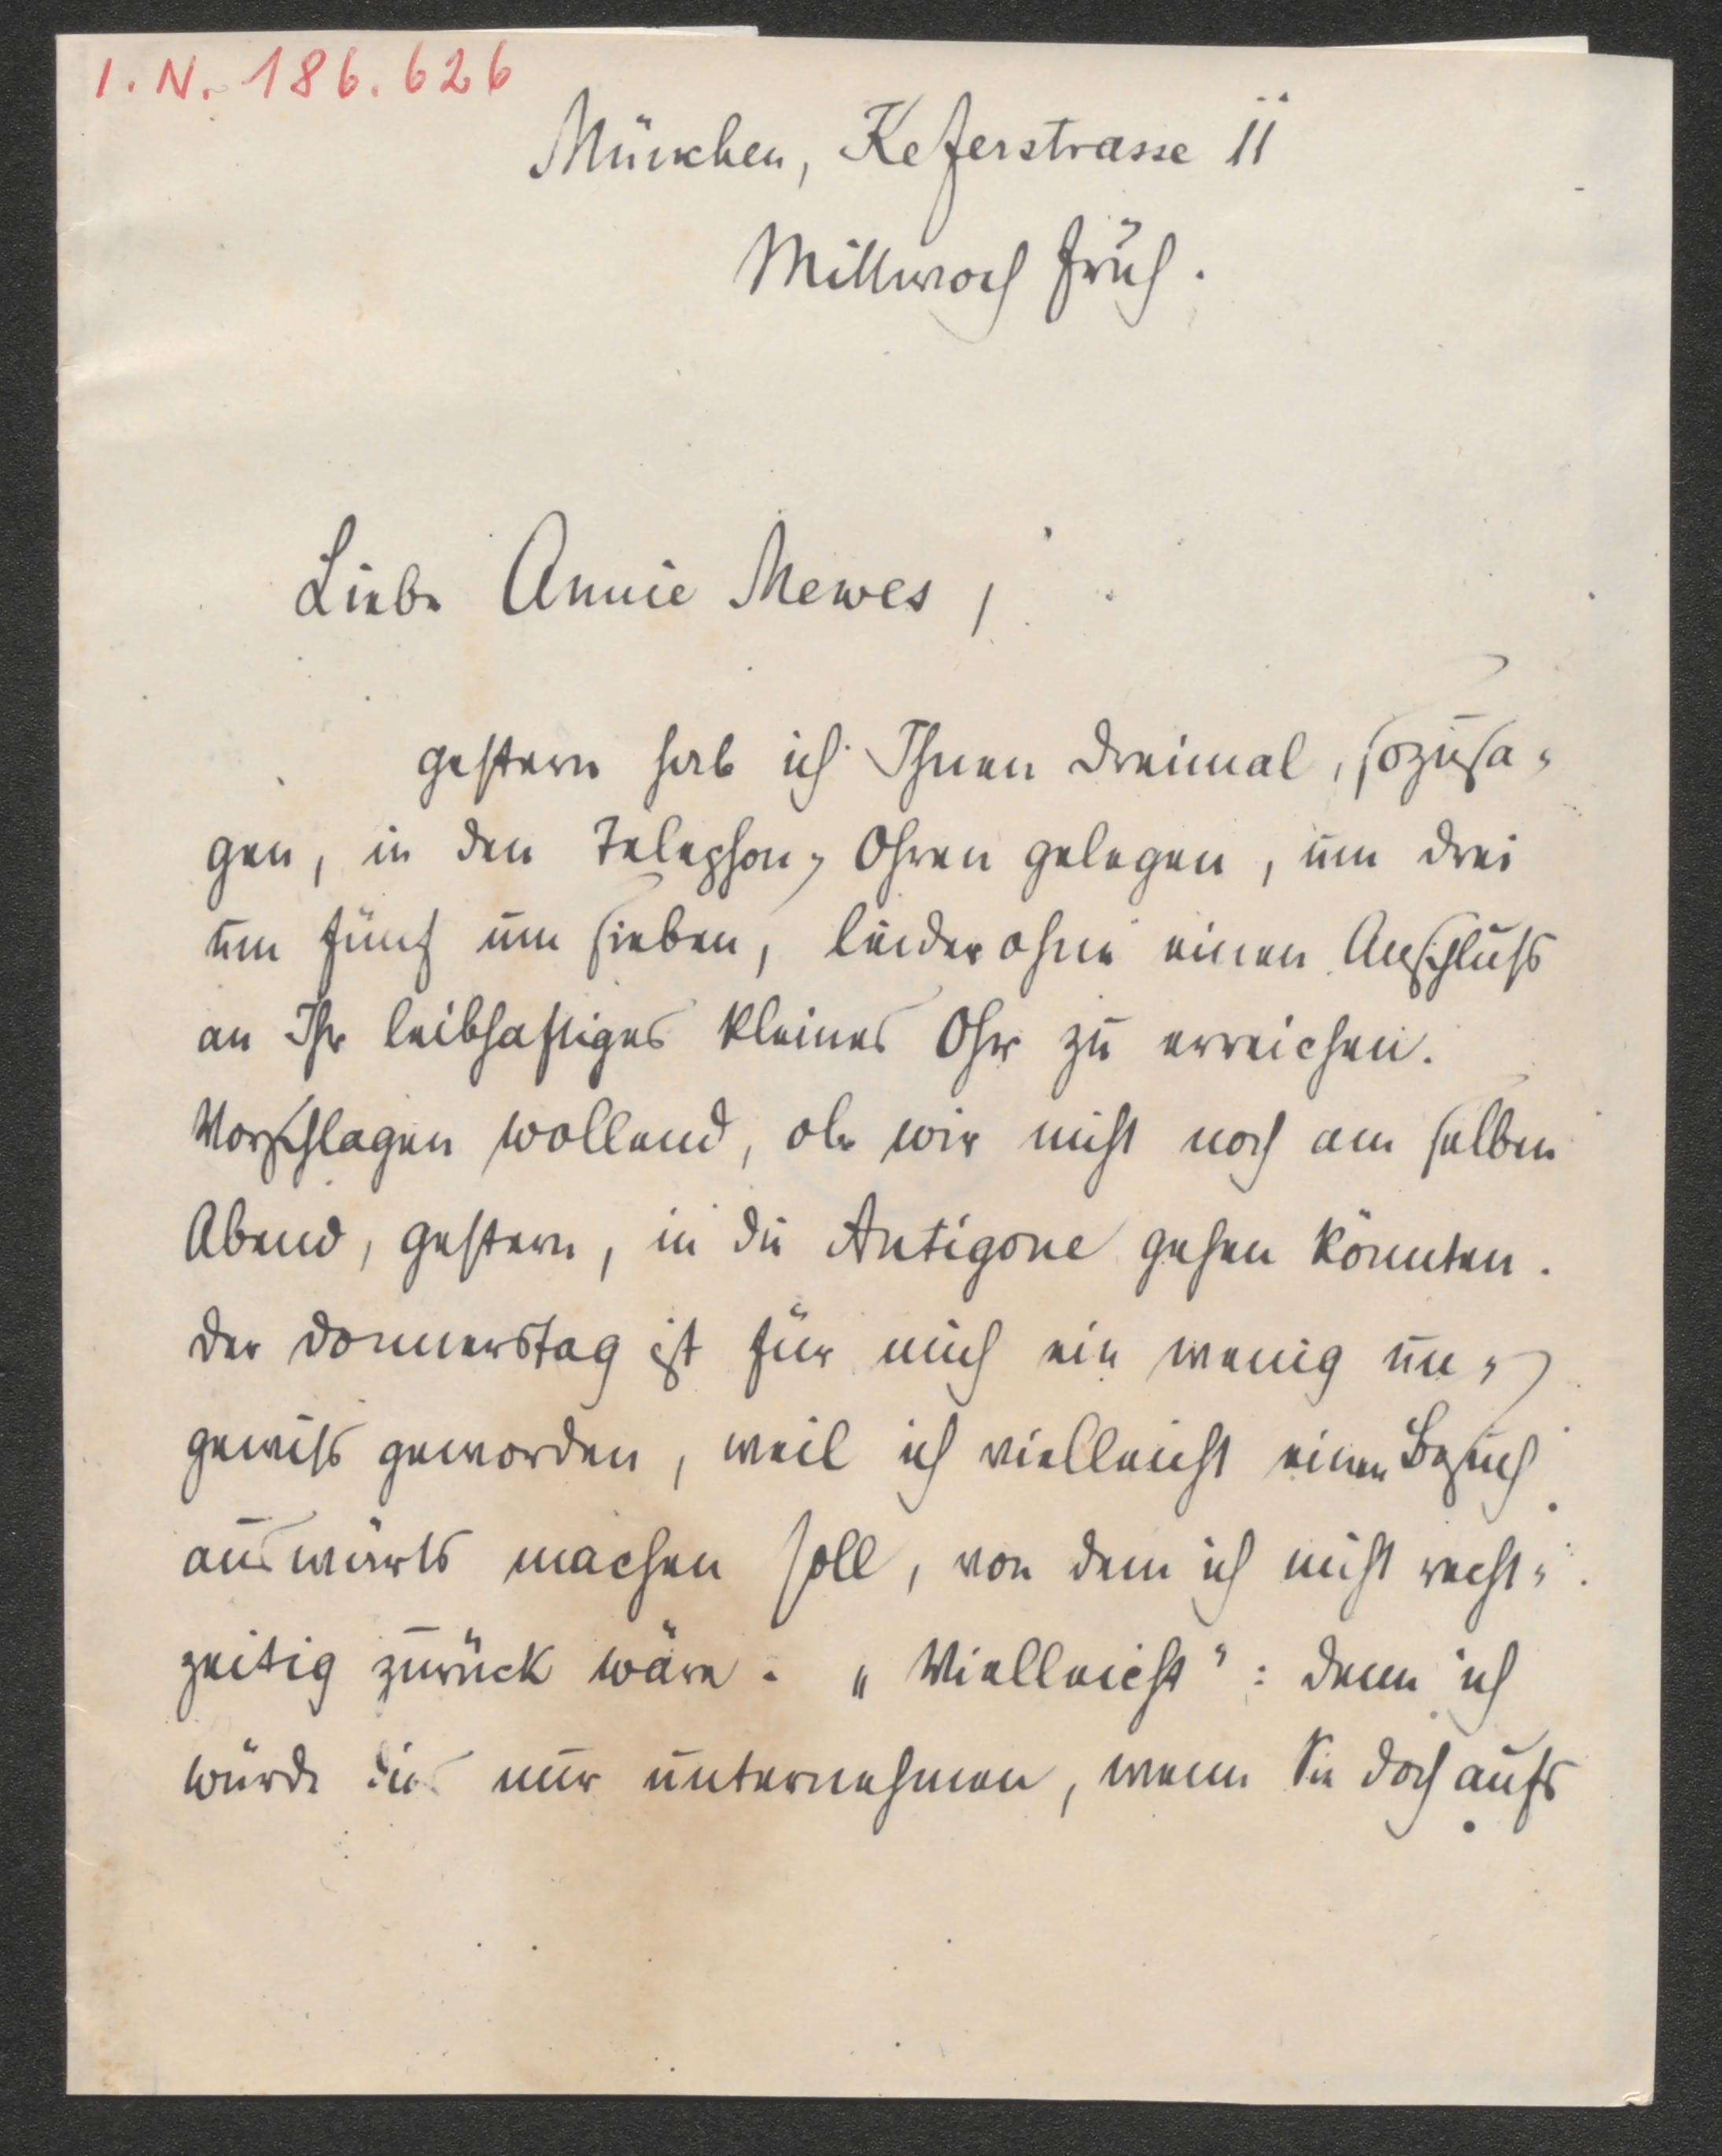 I. N. 186.626
München, Keferstrasse 11
Mittwoch früh.
Liebe Annie Mewes,
gestern hab ich Ihnen dreimal, sozusa-
gen, in den Telephon-Ohren gelegen, um drei
um fünf um sieben, leider ohne einen Anschluss
an Ihr leibhaftiges kleines Ohr zu erreichen.
Vorschlagen wollend, ob wir nicht noch am selben
Abend, gestern, in die Antigone gehen könnten.
Der Donnerstag ist für mich ein wenig un-
gewiss geworden, weil ich vielleicht einen Besuch
auswärts machen soll, von dem ich nicht recht-
zeitig zurück wäre. „Vielleicht“: denn ich
würde dies nur unternehmen, wenn Sie doch aufs